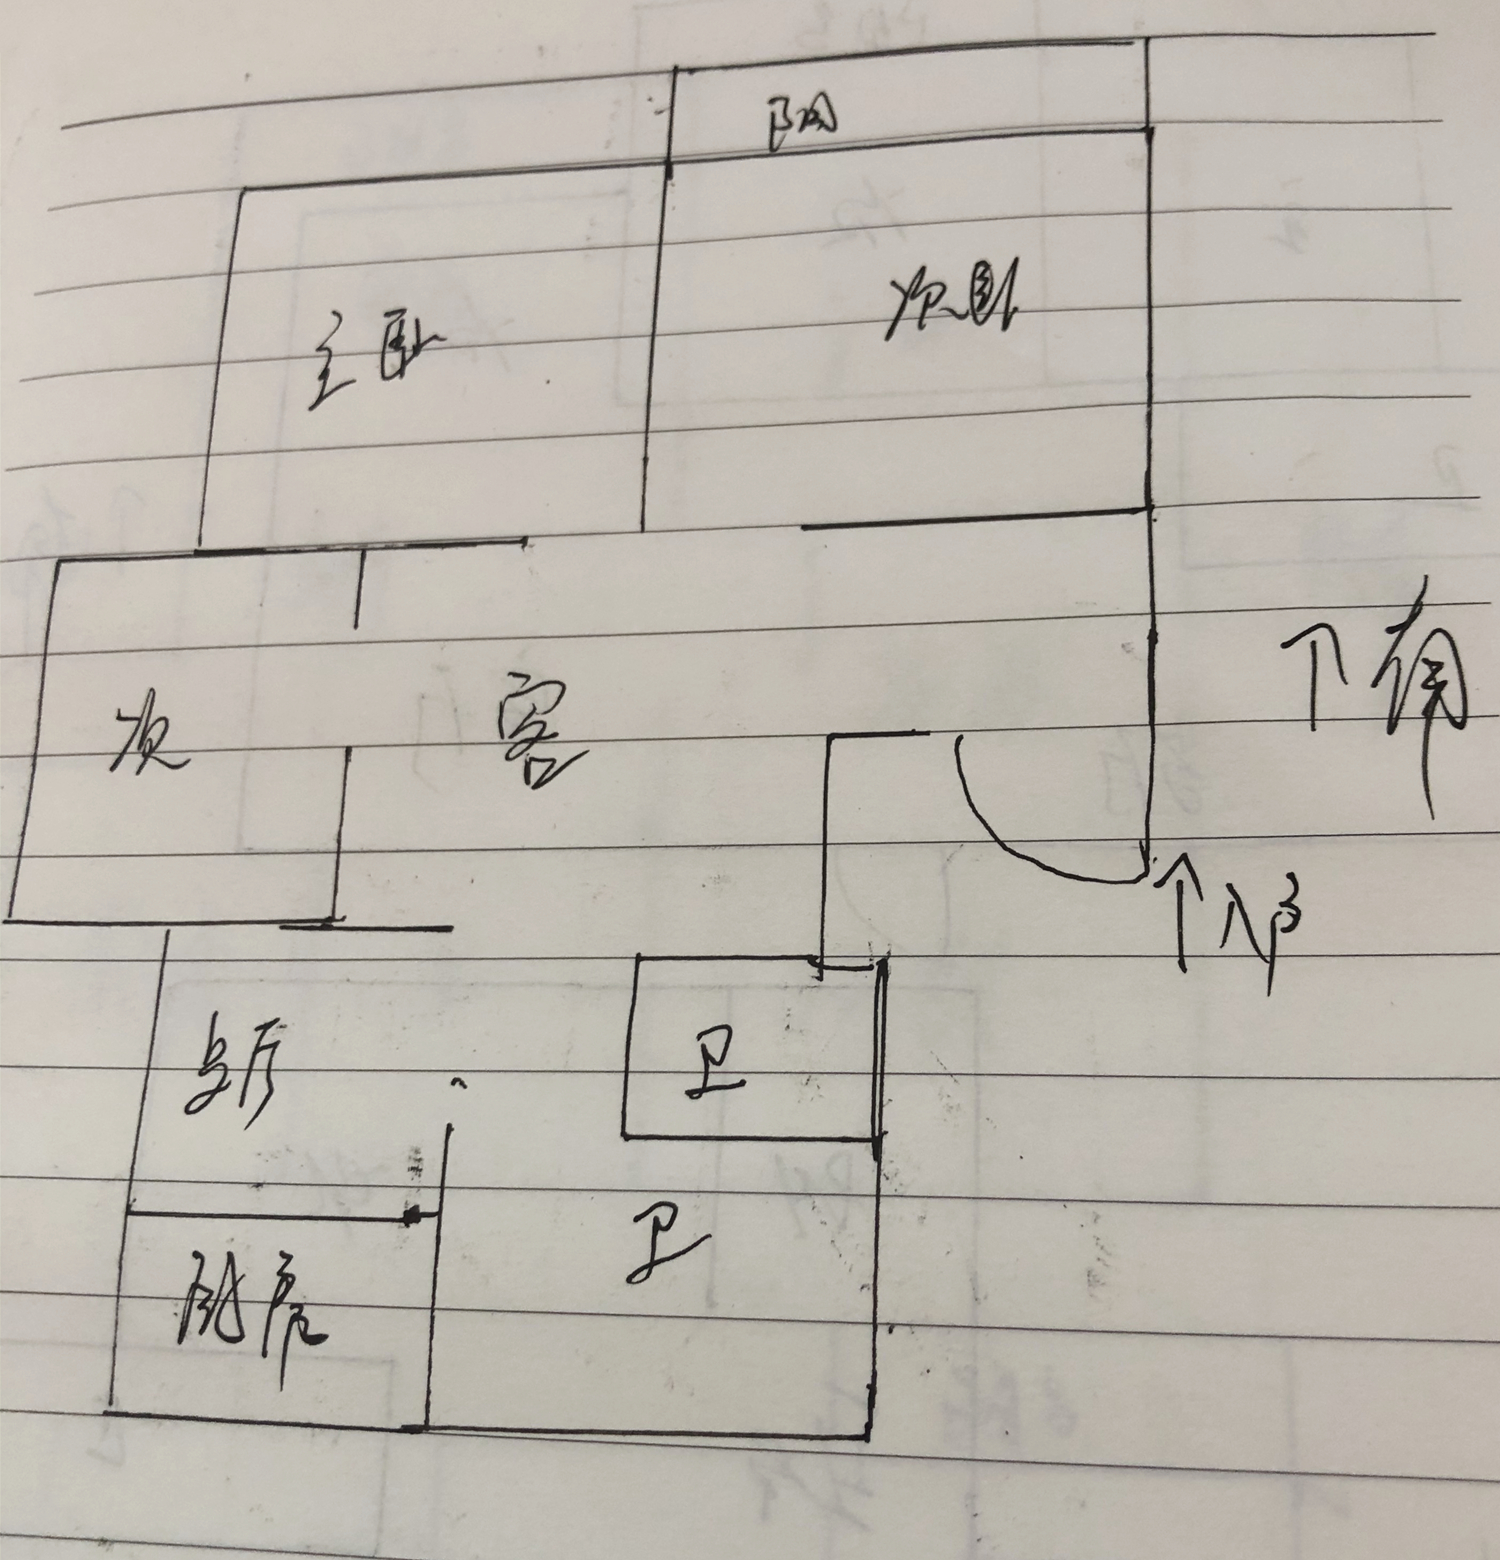 阳
主卧
次卧
次
客
↑南
↑入户
卫
卫
厨房